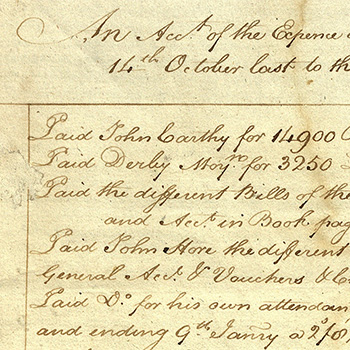 An Acct. of the Expence
14th October last to th
Paid John Carthy for 14900
Paid Derby Moyn. for 3250
Paid the different Bills of the
and Acct. in Book pag
Paid John Hore the different
General Acct. & Vouchers &
Paid Do. for his own attendan
and ending 9th Janry a 2/8